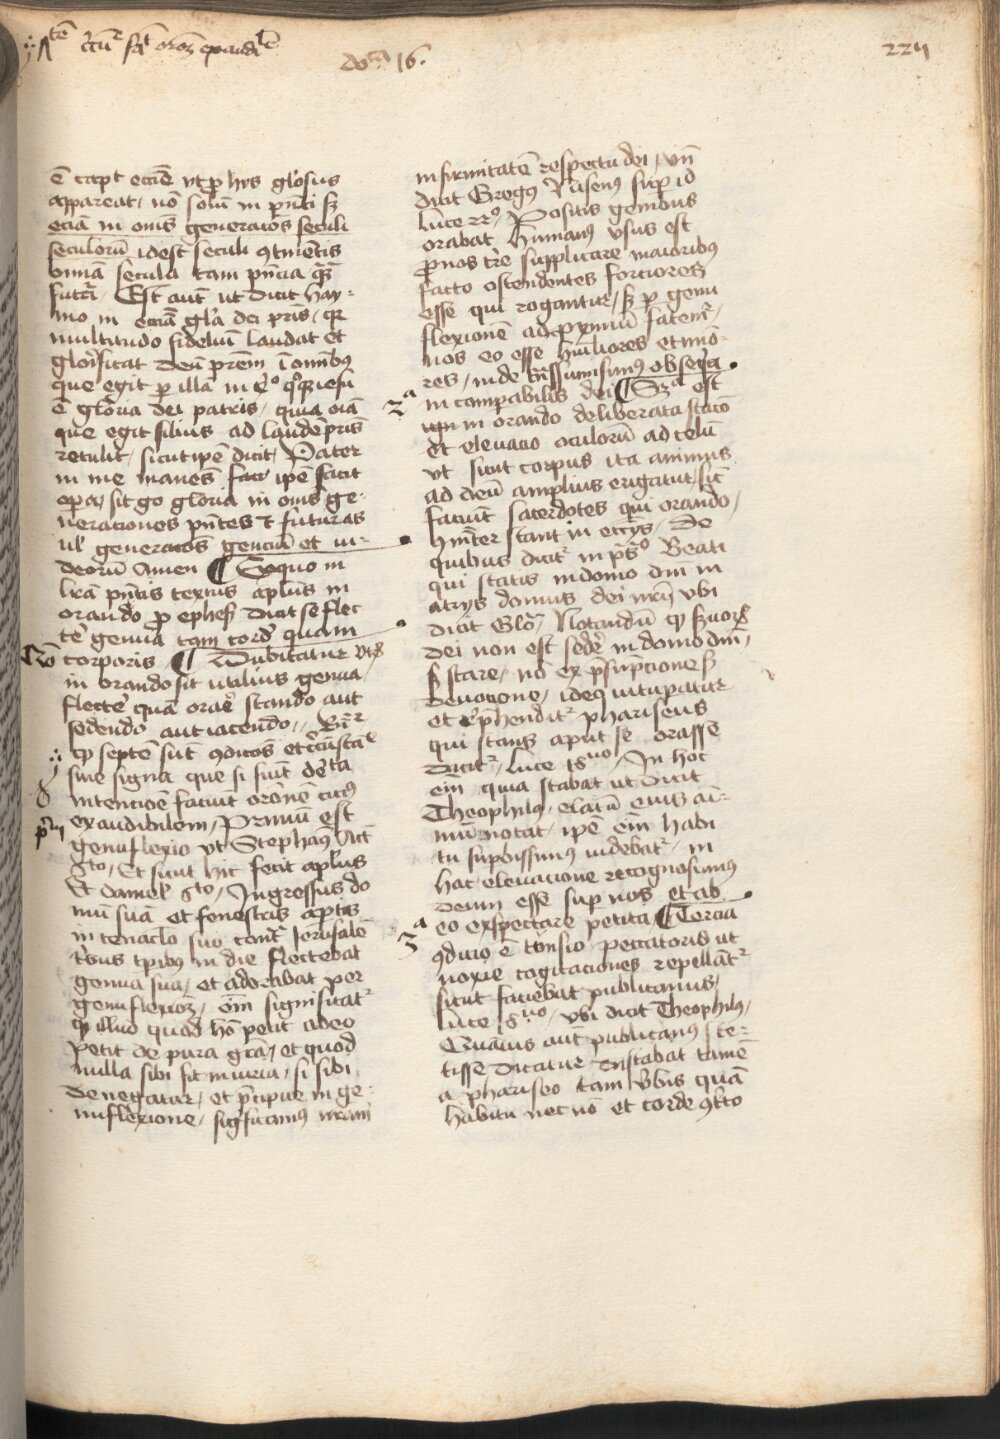 doca 16.
227
ē capt eccīe vt p hys glōsus
appareat, nō solū in pñti sz
eciā in om̄s generacōs seculi
seculorū idest seculi 9tinētis
omīa secula tam pñcia qz̄
futa. Est aūt ut dicit hay-
mo in eccīa glā dei pris, qr
multitudo fideliū laudat et
glorificat deū prēm ī omībus
que egit p illā in
ē gloria dei patris, quia oīa
que egit filius ad laudē pris
retulit, sicut ipē dicit, Pater
in me manēs ipē facit
opa, sit go gloria in om̄s ge-
neraciones pñtes et futuras
ul generacōs genciū et iu-
deorū Amen ¶ Seqūo in
lrā pñtis textus aplūs in
orando p ephes dicit se flec
tē genua tam cord quam
corporis, ¶ Dubitatur utꝝ
in orando sit utilius genua
flectē quā orarē stando aut
sedendo aut iacendo,
qꝫ septē sūt 9dicōs et
siue signa que si fuīt
intencioē faciūt orōnē
exaudibilem, Primū est
genuflexio vt Stephanꝰ Act
Et sicut hic fecit aplūs
Et daniel 6to, Ingressus do
mū suā et fenestris aptis
in cenaclo suo contͣ Jerusalē
tbus tpibꝰ in die flectebat
genua sua, et adorabat per
genuflexioꝫ, em̄ significat
qꝫ illud quod hō petit a deo
petit de pura grā, et quod
nulla sibi fit iniuria, si sibi
denegatur, et pcipue in ge-
nuflexione, sigficamꝰ nram
infirmitatē respectu dei, vn̄
dicit Gregoꝰ Nisenꝰ sup id
luce 22o, Positis genibus
orabat humanꝰ vsus est
pnos tre supplicare maioribꝰ
facto ostendentes forciores
esse qui rogantur, sz p genu
flexionē ad pximū fatemͬ,
nos eo esse hūiliores et mīo-
res, inde
incomparabilis dei ¶ Sza est
in orando deliberata stacō
et eleuacio oculorū ad celū
vt sicut corpus ita animus
ad deū amplius erigatur, sic
faciūt sacerdotes qui orando,
stant in eccijs, De
quibus dicit in pso Beati
qui statis in domo dnī in
atrijs domus dei nrī, vbi
dicit Glō, Notandū qꝫ suoꝝ
dei non est sedē in domo dnī,
s stare, nō ex psupcione sz
deuotione, ideo uitupatur
et rphendit phariseus
qui stans aput se orasse
dicit, luce 18uo, In hoc
em̄ quia stabat ut dicit
Theophilꝰ, elatū eius ai-
mū notat, ipē em̄ habi
tu supbissimꝰ uidebat, in
hac eleuacione recognoscimꝰ
deum esse sup nos et ab
eo exspectare petita ¶ Tercia
9dicio ē tūnsio peccatoris ut
noxie cogitaciones repellāt
sicut faciebat publicanus,
luce 18uo, vbi dicit Theophilꝰ,
Quāuis aūt publicanꝰ ste-
tisse dicatur distabat tamē
a phariseo tam vbis quā
habitu nec nō et corde 9tto